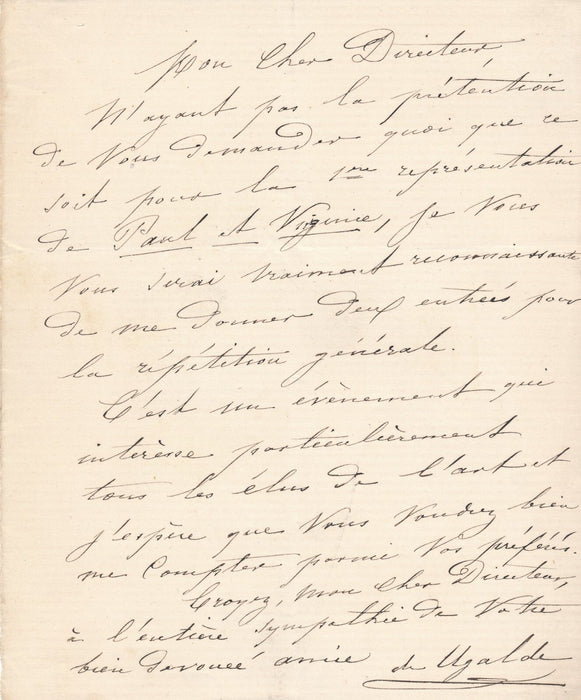 Mon Cher Directeur,
N'ayant pas la prétention
de Vous demander quoi que ce
soit pour la 1ère représentation
de Paul et Virginie, je Vous
Vous serai vraiment reconnaissante
de me donner deux entrées pour
la répétition générale.
C'est un évènement qui
intèresse particulièrement
tous les élus de l'art et
j'espère que Vous Voudrez bien
me Compter parmi Vos préférés.
Croyez, mon Cher Directeur,
à l'entière sympathie de Votre
bien dévouée amie de Ugalde